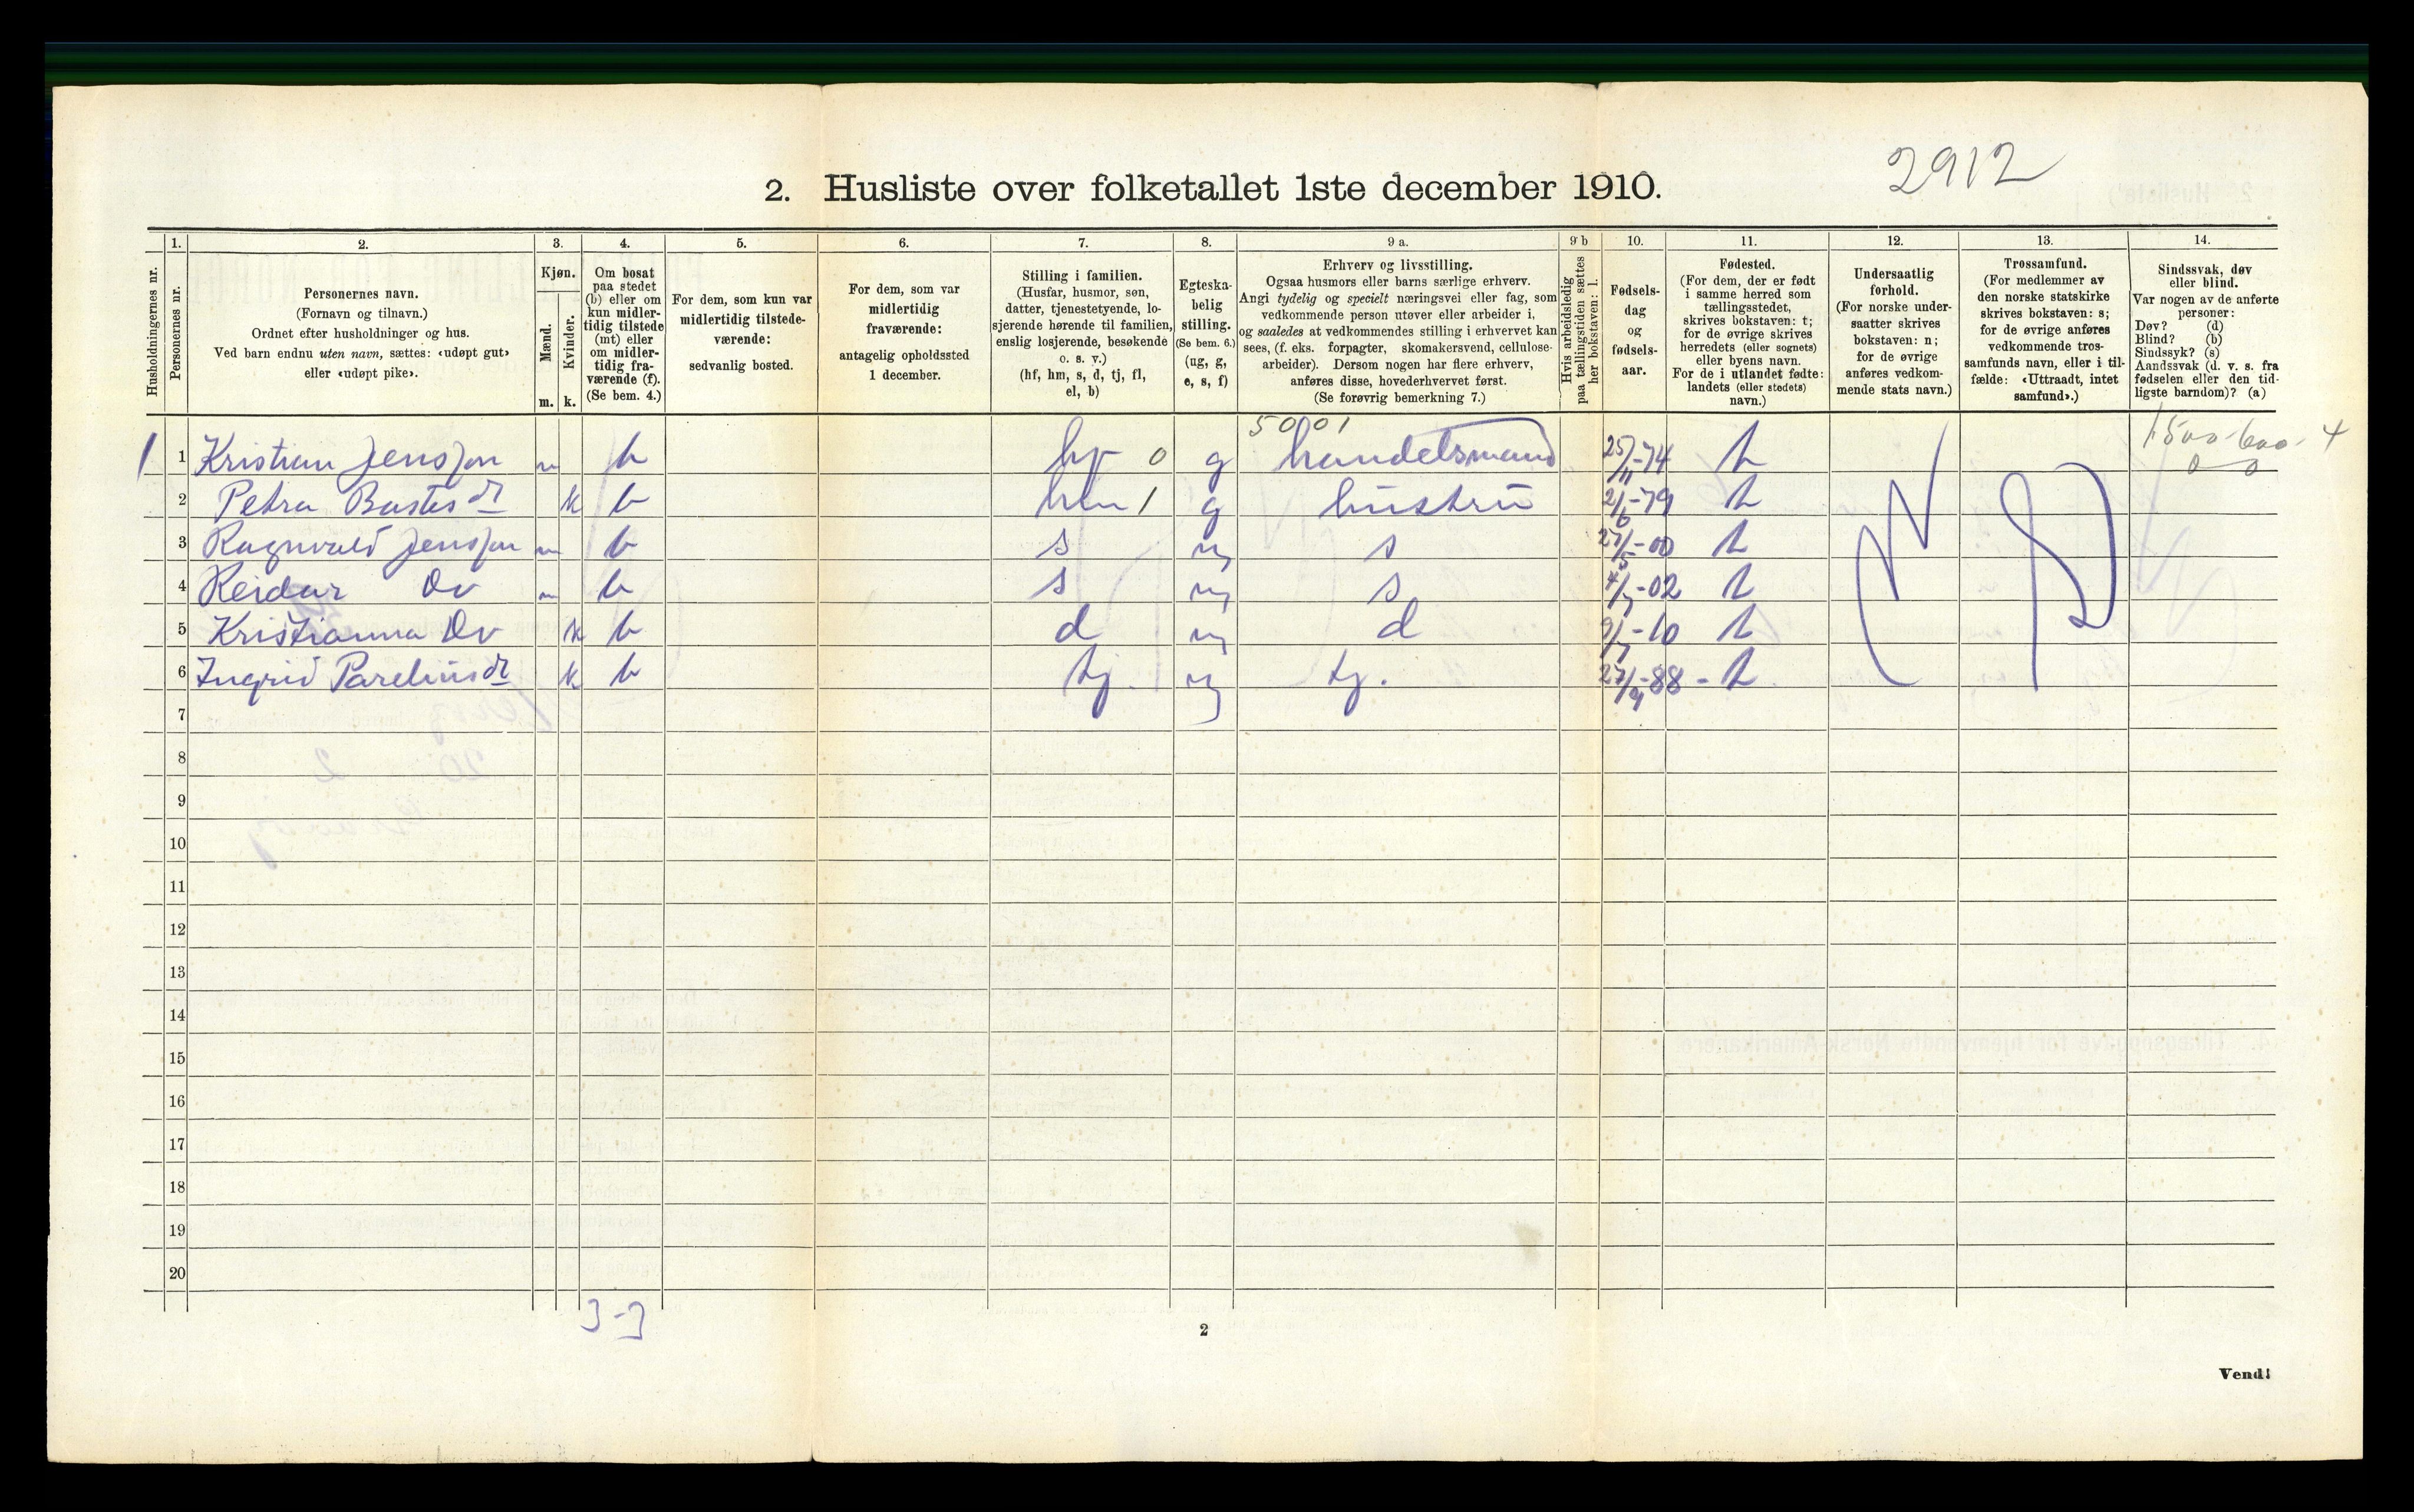 2912
2. Husliste over folketallet 1ste december 1910.
Husholdningernes nr.
1.
Personernes nr.
2.
Personernes navn.
(Fornavn og tilnavn.)
Ordnet efter husholdninger og hus.
Ved barn endnu uten navn, sættes: «udøpt gut»
eller «udøpt pike».
3.
Kjøn.
Mænd.
Kvinder.
m. k.
4.
Om bosat
paa stedet
(b) eller om
kun midler-
tidig tilstede
(mt) eller
om midler-
tidig fra-
værende (f).
(Se bem. 4.)
5.
For dem, som kun var
midlertidig tilstede-
værende:
sedvanlig bosted.
6.
For dem, som var
midlertidig
fraværende:
antagelig opholdssted
1 december.
7.
Stilling i familien.
(Husfar, husmor, søn,
datter, tjenestetyende, lo-
sjerende hørende til familien,
enslig losjerende, besøkende
o. s. v.)
(hf, hm, s, d, tj, fl,
el, b)
8.
Egteska-
belig
stilling.
(Se bem. 6.)
(ug, g,
e, s, f)
9 a.
Erhverv og livsstilling.
Ogsaa husmors eller barns særlige erhverv.
Angi tydelig og specielt næringsvei eller fag, som
vedkommende person utøver eller arbeider i,
og saaledes at vedkommendes stilling i erhvervet kan
sees, (f. eks. forpagter, skomakersvend, cellulose-
arbeider). Dersom nogen har flere erhverv,
anføres disse, hovederhvervet først.
(Se forøvrig bemerkning 7.)
9 b
Hvis arbeidsledig
paa tællingstiden sættes
her bokstaven: l.
10.
Fødsels-
dag
og
fødsels-
aar.
11.
Fødested.
(For dem, der er født
i samme herred som
tællingsstedet,
skrives bokstaven: t;
for de øvrige skrives
herredets (eller sognets)
eller byens navn.
For de i utlandet fødte:
landets (eller stedets)
navn.)
12.
Undersaatlig
forhold.
(For norske under-
saatter skrives
bokstaven: n;
for de øvrige
anføres vedkom-
mende stats navn.)
13.
Trossamfund.
(For medlemmer av
den norske statskirke
skrives bokstaven: s;
for de øvrige anføres
vedkommende tros-
samfunds navn, eller i til-
fælde: «Uttraadt, intet
samfund».)
14.
Sindssvak, døv
eller blind.
Var nogen av de anførte
personer:
Døv? (d)
Blind? (b)
Sindssyk? (s)
Aandssvak (d. v. s. fra
fødselen eller den tid-
ligste barndom)? (a)
5001 1500-600- 4
1 1 Kristian Jensson m b hf 0 g handelsmand 25/11-74 t 0 0
2 Petra Bastesdr k b hm 1 g hustru 2/6-79 t
3 Ragnvald Jensson m b s ug s 27/5-00 t n s
4 Reidar Do m b s ug s 4/7-02 t
5 Kristianna Do k b d ug d 9/7-10 t
6 Ingrid Pareliusdr k b tj. ug tj. 27/9-88 - t
7
8
9
10
11
12
13
14
15
16
17
18
19
20
3-3
2
Vend!